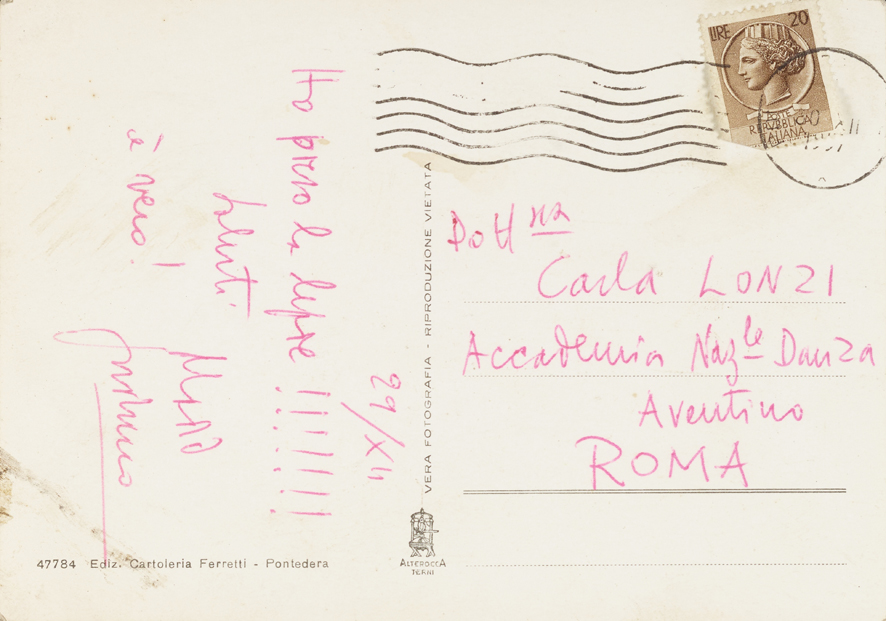 29/XII
Ho preso la lepre !!!!!!!
Saluti
è vero!
VERA FOTOGRAFIA - RIPRODUZIONE VIETATA
47784 Ediz. Cartoleria Ferretti - Pontedera
ALTEROCCA
TERNI
LIRE 20
POSTE
REPVBBLICA
ITALIANA
Dott ssa
Carla LONZI
Accademia Naz.le Danza
Aventino
ROMA